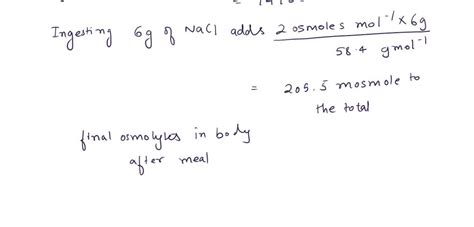 Ingesting 6g of NaCl adds 2 osmoles mol⁻¹ × 6g
58.4 gmol⁻¹
= 205.5 mosmole to
the total
final osmolytes in body
after meal